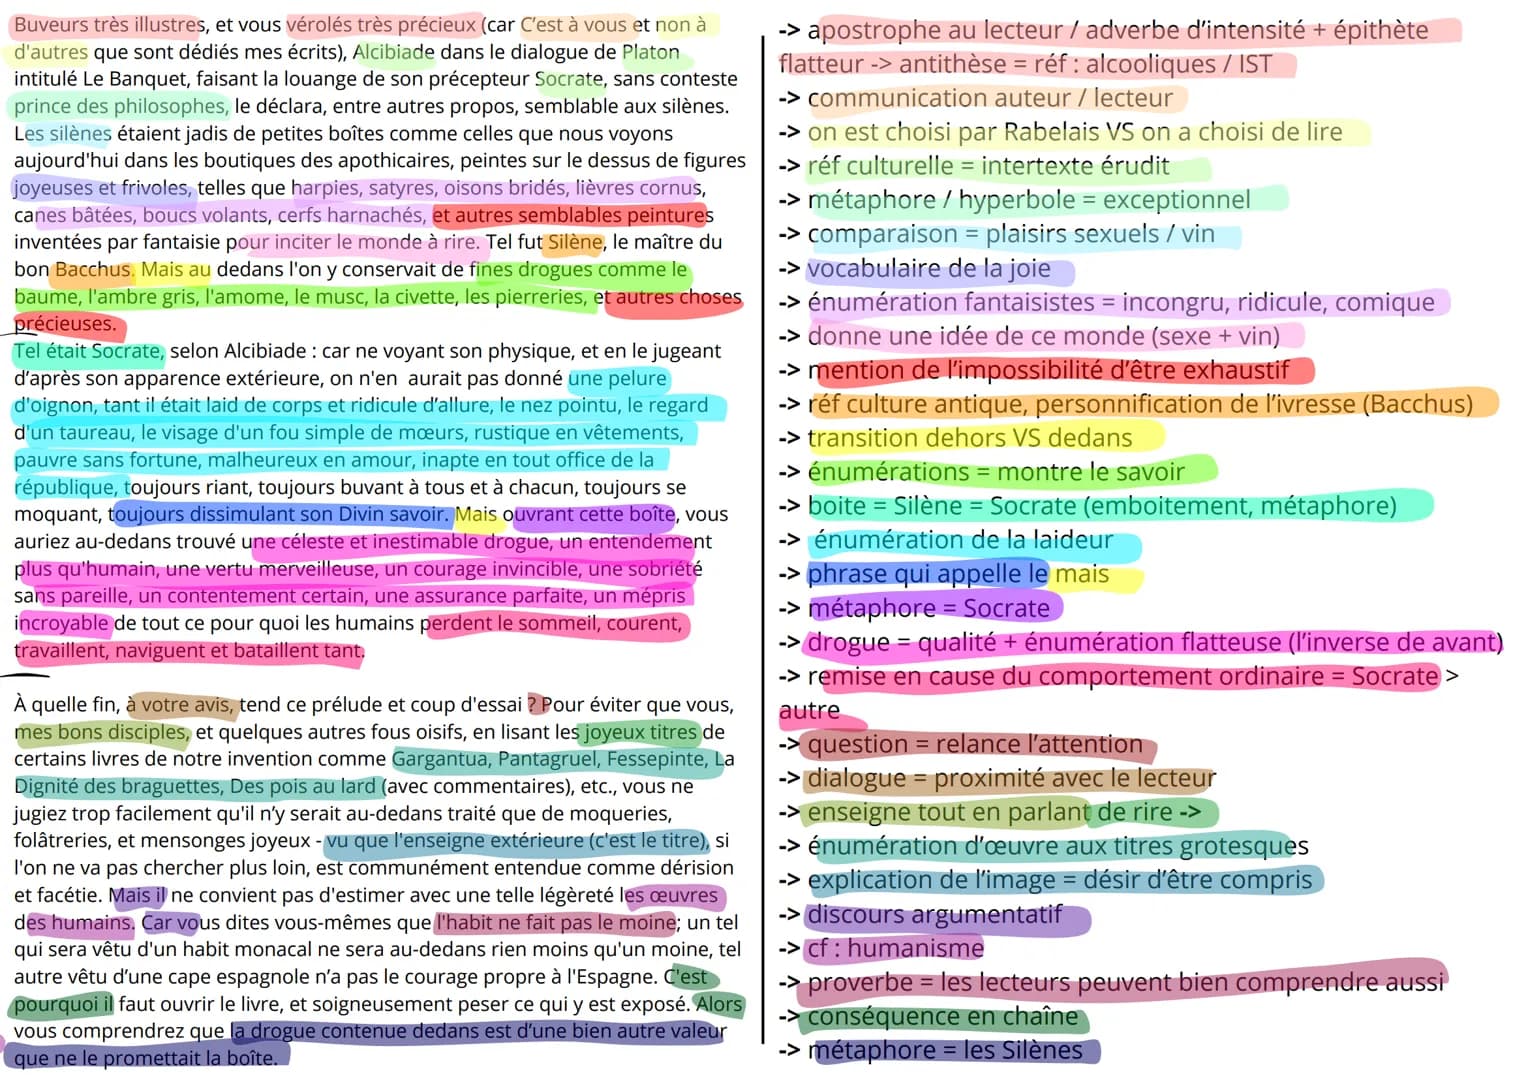 Buveurs très illustres, et vous vérolés très précieux (car C’est à vous et non à
d'autres que sont dédiés mes écrits), Alcibiade dans le dialogue de Platon
intitulé Le Banquet, faisant la louange de son précepteur Socrate, sans conteste
prince des philosophes, le déclara, entre autres propos, semblable aux silènes.
Les silènes étaient jadis de petites boîtes comme celles que nous voyons
aujourd'hui dans les boutiques des apothicaires, peintes sur le dessus de figures
joyeuses et frivoles, telles que harpies, satyres, oisons bridés, lièvres cornus,
canes bâtées, boucs volants, cerfs harnachés, et autres semblables peintures
inventées par fantaisie pour inciter le monde à rire. Tel fut Silène, le maître du
bon Bacchus. Mais au dedans l'on y conservait de fines drogues comme le
baume, l'ambre gris, l'amome, le musc, la civette, les pierreries, et autres choses
précieuses.
Tel était Socrate, selon Alcibiade : car ne voyant son physique, et en le jugeant
d’après son apparence extérieure, on n'en aurait pas donné une pelure
d'oignon, tant il était laid de corps et ridicule d’allure, le nez pointu, le regard
d’un taureau, le visage d'un fou simple de mœurs, rustique en vêtements,
pauvre sans fortune, malheureux en amour, inapte en tout office de la
république, toujours riant, toujours buvant à tous et à chacun, toujours se
moquant, toujours dissimulant son Divin savoir. Mais ouvrant cette boîte, vous
auriez au-dedans trouvé une céleste et inestimable drogue, un entendement
plus qu'humain, une vertu merveilleuse, un courage invincible, une sobriété
sans pareille, un contentement certain, une assurance parfaite, un mépris
incroyable de tout ce pour quoi les humains perdent le sommeil, courent,
travaillent, naviguent et bataillent tant.
À quelle fin, à votre avis, tend ce prélude et coup d'essai ? Pour éviter que vous,
mes bons disciples, et quelques autres fous oisifs, en lisant les joyeux titres de
certains livres de notre invention comme Gargantua, Pantagruel, Fessepinte, La
Dignité des braguettes, Des pois au lard (avec commentaires), etc., vous ne
jugiez trop facilement qu'il n’y serait au-dedans traité que de moqueries,
folâtreries, et mensonges joyeux - vu que l'enseigne extérieure (c'est le titre), si
l'on ne va pas chercher plus loin, est communément entendue comme dérision
et facétie. Mais il ne convient pas d'estimer avec une telle légèreté les œuvres
des humains. Car vous dites vous-mêmes que l'habit ne fait pas le moine; un tel
qui sera vêtu d'un habit monacal ne sera au-dedans rien moins qu'un moine, tel
autre vêtu d’une cape espagnole n’a pas le courage propre à l'Espagne. C'est
pourquoi il faut ouvrir le livre, et soigneusement peser ce qui y est exposé. Alors
vous comprendrez que la drogue contenue dedans est d’une bien autre valeur
que ne le promettait la boîte.
-> apostrophe au lecteur / adverbe d’intensité + épithète
flatteur -> antithèse = réf : alcooliques / IST
-> communication auteur / lecteur
-> on est choisi par Rabelais VS on a choisi de lire
-> réf culturelle = intertexte érudit
-> métaphore / hyperbole = exceptionnel
-> comparaison = plaisirs sexuels / vin
-> vocabulaire de la joie
-> énumération fantaisistes = incongru, ridicule, comique
-> donne une idée de ce monde (sexe + vin)
-> mention de l’impossibilité d’être exhaustif
-> réf culture antique, personnification de l’ivresse (Bacchus)
-> transition dehors VS dedans
-> énumérations = montre le savoir
-> boite = Silène = Socrate (emboitement, métaphore)
-> énumération de la laideur
-> phrase qui appelle le mais
-> métaphore = Socrate
-> drogue = qualité + énumération flatteuse (l’inverse de avant)
-> remise en cause du comportement ordinaire = Socrate >
autre
-> question = relance l’attention
-> dialogue = proximité avec le lecteur
-> enseigne tout en parlant de rire ->
-> énumération d’œuvre aux titres grotesques
-> explication de l’image = désir d’être compris
-> discours argumentatif
-> cf : humanisme
-> proverbe = les lecteurs peuvent bien comprendre aussi
-> conséquence en chaîne
-> métaphore = les Silènes